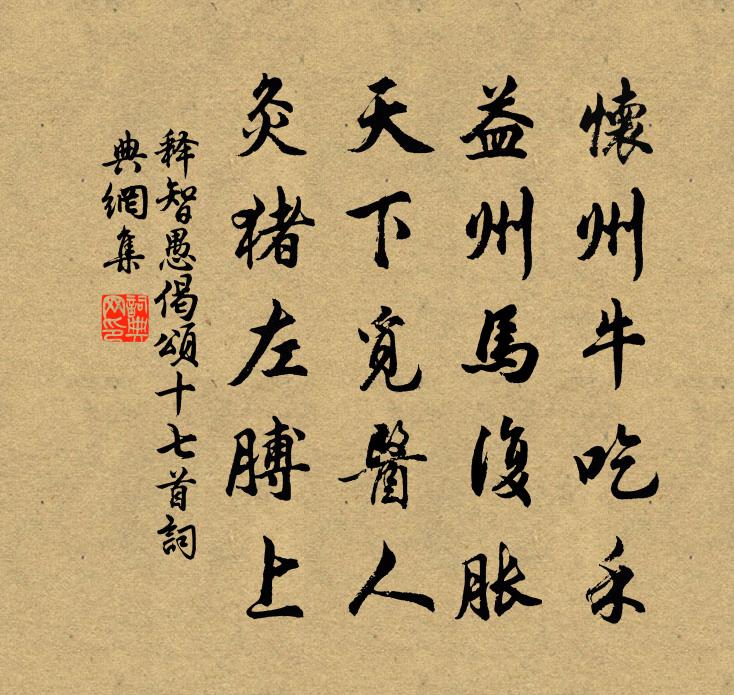 懷州牛吃禾
益州馬復脹
天下覓醫人
灸猪左膊上
释智愚偈頌十七首詞
典網集
詞典
网印